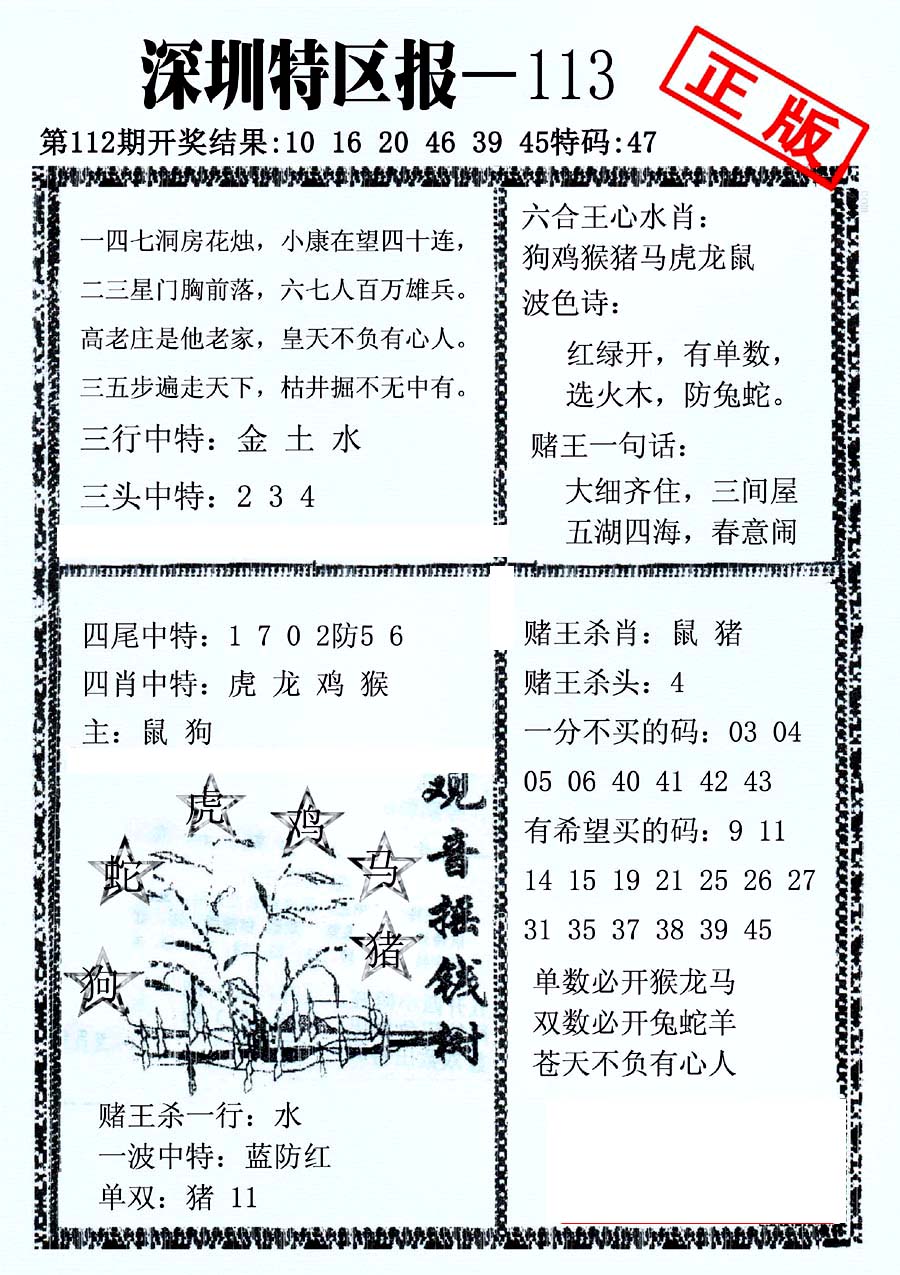 深圳特区报—113
正版
第112期开奖结果:10 16 20 46 39 45特码:47
一四七洞房花烛，小康在望四十连，
二三星门胸前落，六七人百万雄兵。
高老庄是他老家，皇天不负有心人。
三五步遍走天下，枯井掘不无中有。
三行中特：金 土 水
三头中特：2 3 4
六合王心水肖：
狗鸡猴猪马虎龙鼠
波色诗：
红绿开，有单数，
选火木，防兔蛇。
赌王一句话：
大细齐住，三间屋
五湖四海，春意闹
四尾中特：1 7 0 2防5 6
四肖中特：虎 龙 鸡 猴
主：鼠 狗
虎
鸡
蛇
马
猪
狗
观音摇钱树
赌王杀一行：水
一波中特：蓝防红
单双：猪 11
赌王杀肖：鼠 猪
赌王杀头：4
一分不买的码：03 04
05 06 40 41 42 43
有希望买的码：9 11
14 15 19 21 25 26 27
31 35 37 38 39 45
单数必开猴龙马
双数必开兔蛇羊
苍天不负有心人